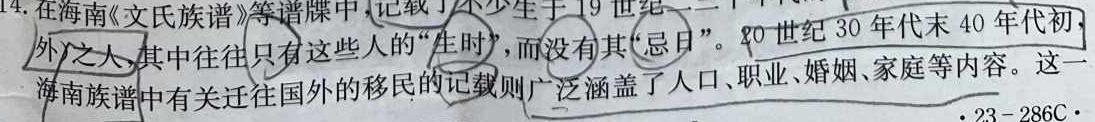 14. 在海南《文氏族谱》等谱牒中,记载了不少生于 19 世纪
外之人,其中往往只有这些人的“生时”,而没有其“忌日”。20 世纪 30 年代末 40 年代初,
海南族谱中有关迁往国外的移民的记载则广泛涵盖了人口、职业、婚姻、家庭等内容。这一
· 23-286C ·